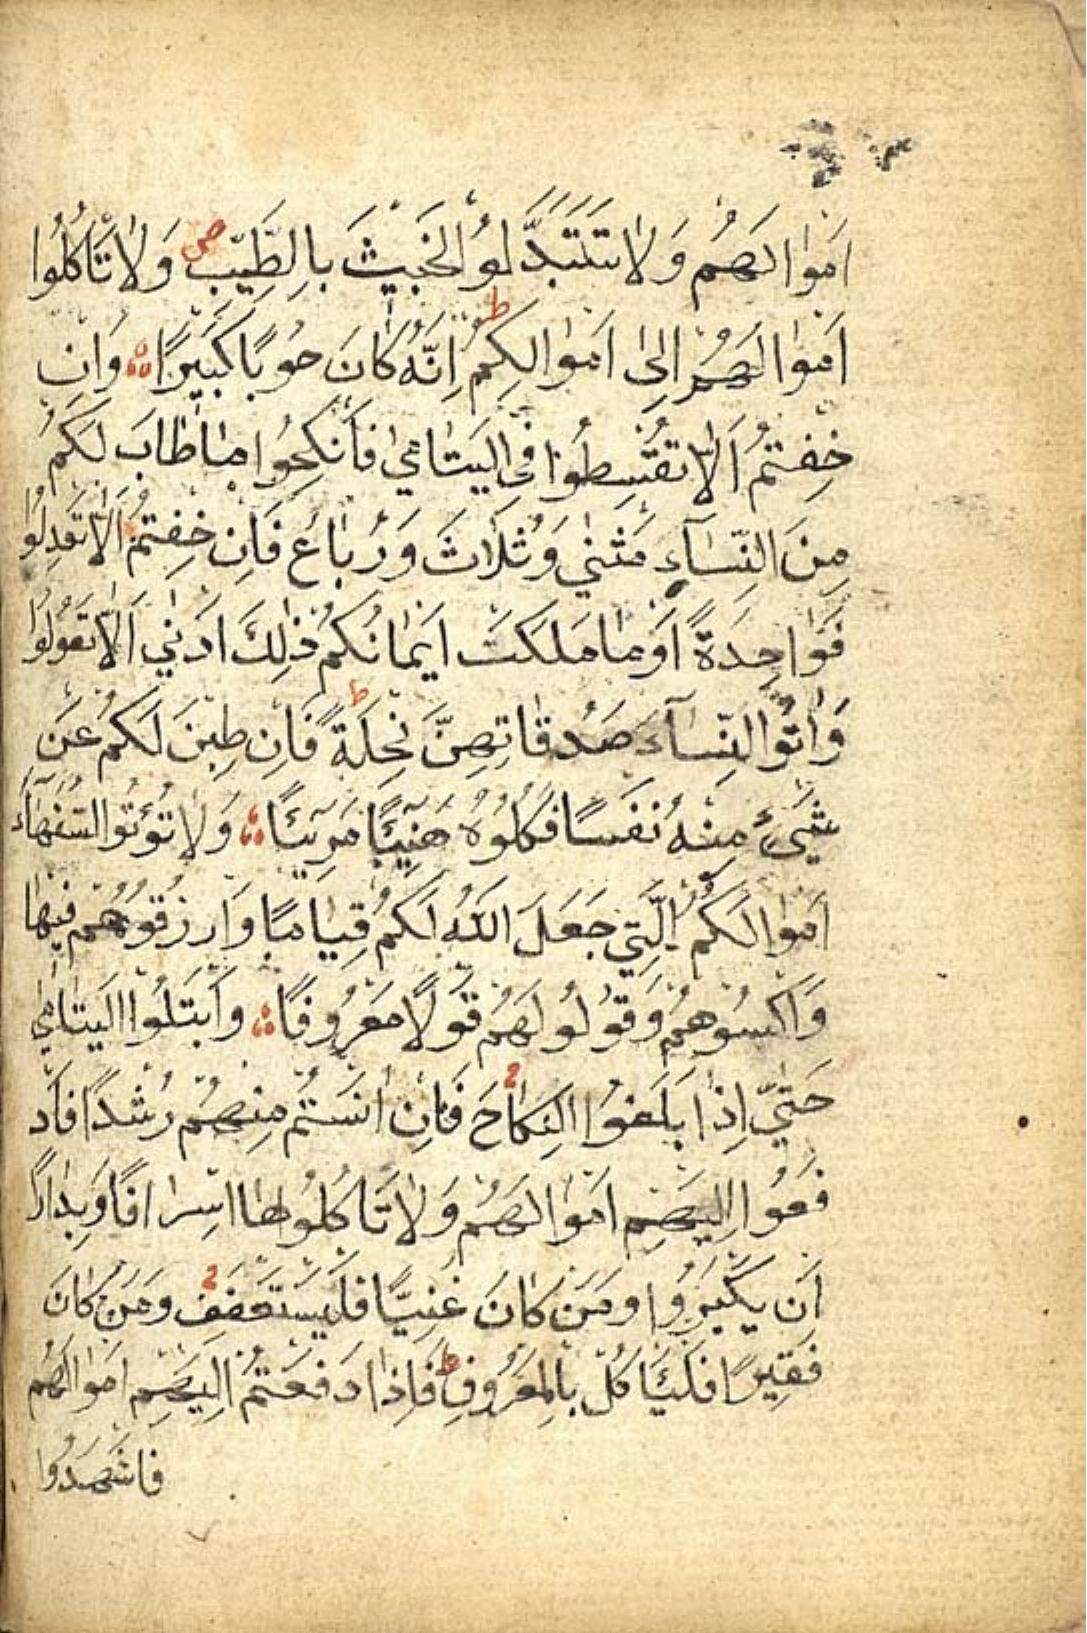 اَموٰالَهُم وَلاٰ تَتَبَدَّلوُ الخَبيثَ بِالطَّيِّبِ ص وَلاٰ تَاكُلُوا
اَموٰالَهُم اِلىٰ اَموٰالِكُم ط اِنَّهُ كٰانَ حُوبًا كَبيَرًا وَاِن
خِفتُم اَلاّٰ تُقسِطُوا فىِ اليَتٰامىٰ فَاَنكِحُوا مٰا طٰابَ لَكُم
مِنَ النِّسٰآءِ مَثنىٰ وَثُلاٰثَ وَرُبٰاعَ فَاِن خِفتُم اَلاّٰ تَعدِلُوا
فَوٰاحِدَةً اَو مٰا مَلَكَت اَيمٰانُكُم ذٰلِكَ اَدنىٰ اَلاّٰ تَعُولُوا
وَاٰتُوا النِّسٰآءَ صَدُقٰاتِهِنَّ نِحلَةً ط فَاِن طِبنَ لَكُم عَن
شَيءٍ مِنهُ نَفسًا فَكُلُوُهُ هَنيِئًا مَرِيئًا وَلاٰ تُؤتُوا السُّفَهٰآءَ
اَموٰالَكُمُ الَّتىِ جَعَلَ اللّٰهُ لَكُم قِيٰامًا وَارزُقُوهُم فيِهٰا
وَاكسُوهُم وَقوُلوُا لَهُم قَولًا مَعرُوفًا وَابتَلُوا اليَتٰامىٰ
حَتّىٰ اِذٰا بَلَغُوا النِّكٰاحَ فَاِن اٰنَستُم مِنهُم رُشدًا فَاد
فَعُوا اِلَيهِم اَموٰالَهُم وَلاٰ تَاكُلُوهٰا اِسرٰافًا وَبِدٰارًا
اَن يَكبَرُوا وَمَن كٰانَ غَنِيًّا فَليَستَعفِف وَمَن كٰانَ
فَقيِرًا فَليَاكُل بِالمَعرُوفِ ط فَاِذٰا دَفَعتُم اِلَيهِم اَموٰالَهُم
فَاشهَدُوا